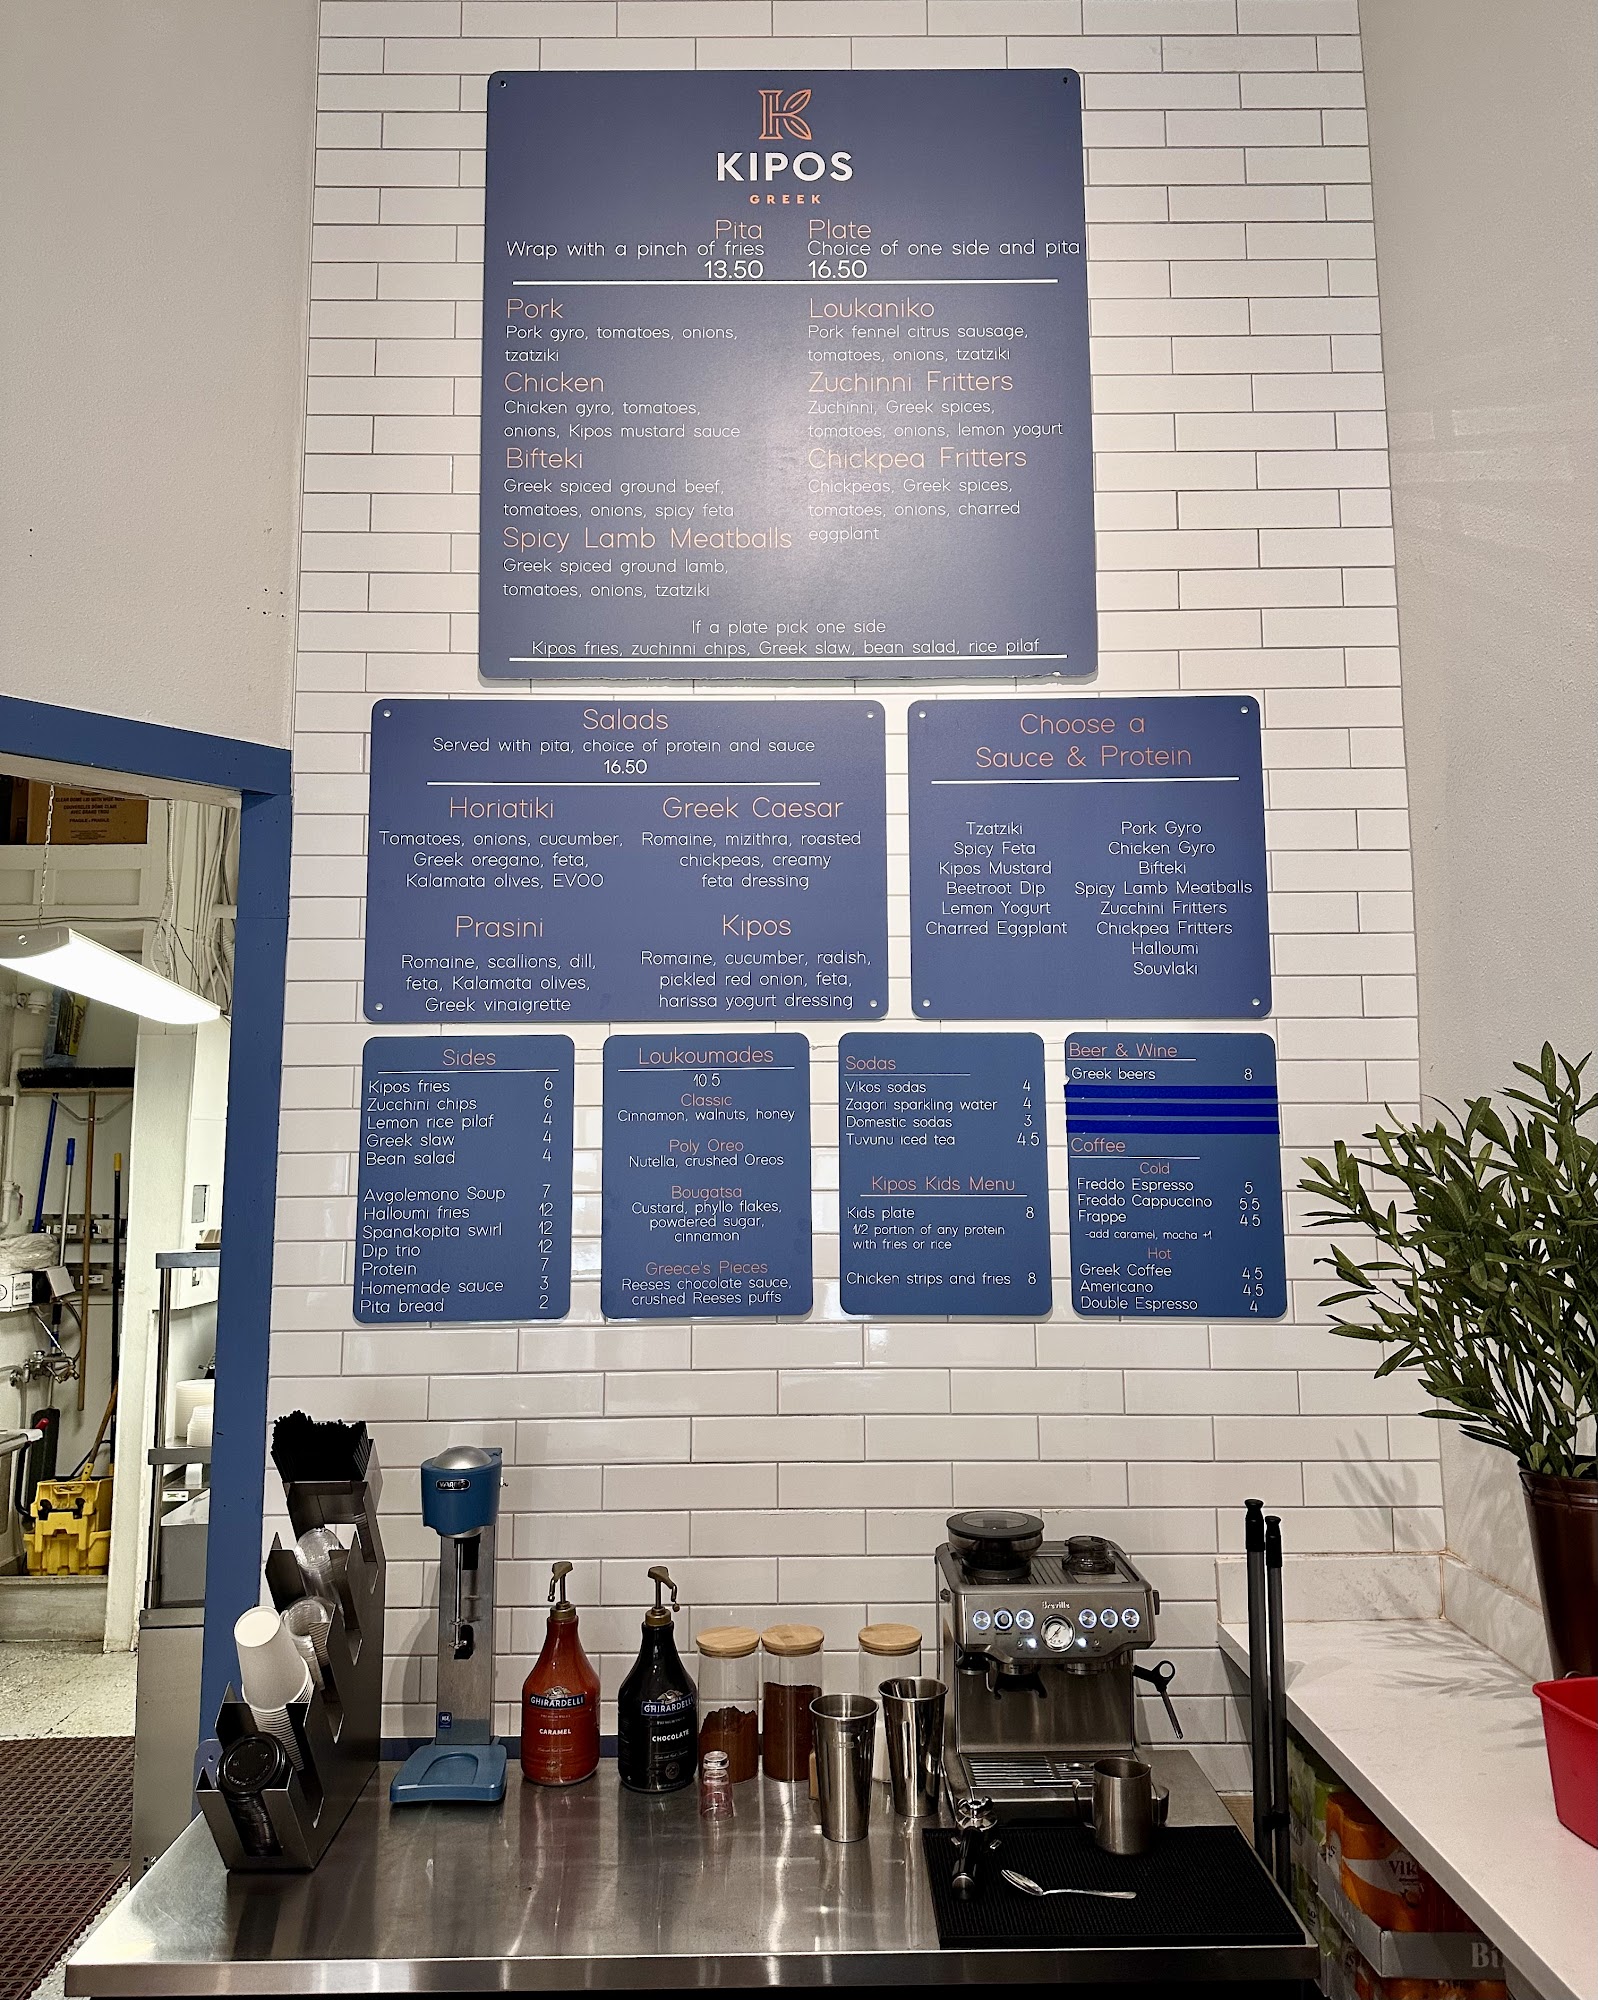 KIPOS
GREEK
Pita
Wrap with a pinch of fries
13.50
Plate
Choice of one side and pita
16.50
Pork
Pork gyro, tomatoes, onions,
tzatziki
Chicken
Chicken gyro, tomatoes,
onions, Kipos mustard sauce
Bifteki
Greek spiced ground beef,
tomatoes, onions, spicy feta
Spicy Lamb Meatballs
Greek spiced ground lamb,
tomatoes, onions, tzatziki
Loukaniko
Pork fennel citrus sausage,
tomatoes, onions, tzatziki
Zuchinni Fritters
Zuchinni, Greek spices,
tomatoes, onions, lemon yogurt
Chickpea Fritters
Chickpeas, Greek spices,
tomatoes, onions, charred
eggplant
If a plate pick one side
Kipos fries, zuchinni chips, Greek slaw, bean salad, rice pilaf
Salads
Served with pita, choice of protein and sauce
16.50
Horiatiki
Tomatoes, onions, cucumber,
Greek oregano, feta,
Kalamata olives, EVOO
Greek Caesar
Romaine, mizithra, roasted
chickpeas, creamy
feta dressing
Prasini
Romaine, scallions, dill,
feta, Kalamata olives,
Greek vinaigrette
Kipos
Romaine, cucumber, radish,
pickled red onion, feta,
harissa yogurt dressing
Choose a
Sauce & Protein
Tzatziki
Spicy Feta
Kipos Mustard
Beetroot Dip
Lemon Yogurt
Charred Eggplant
Pork Gyro
Chicken Gyro
Bifteki
Spicy Lamb Meatballs
Zucchini Fritters
Chickpea Fritters
Halloumi
Souvlaki
Sides
Kipos fries 6
Zucchini chips 6
Lemon rice pilaf 4
Greek slaw 4
Bean salad 4
Avgolemono Soup 7
Halloumi fries 12
Spanakopita swirl 12
Dip trio 12
Protein 7
Homemade sauce 3
Pita bread 2
Loukoumades
10.5
Classic
Cinnamon, walnuts, honey
Poly Oreo
Nutella, crushed Oreos
Bougatsa
Custard, phyllo flakes,
powdered sugar,
cinnamon
Greece's Pieces
Reeses chocolate sauce,
crushed Reeses puffs
Sodas
Vikos sodas 4
Zagori sparkling water 4
Domestic sodas 3
Tuvunu iced tea 4.5
Kipos Kids Menu
Kids plate 8
1/2 portion of any protein
with fries or rice
Chicken strips and fries 8
Beer & Wine
Greek beers 8
Coffee
Cold
Freddo Espresso 5
Freddo Cappuccino 5.5
Frappe 4.5
-add caramel, mocha +1
Hot
Greek Coffee 4.5
Americano 4.5
Double Espresso 4
WARING
GHIRARDELLI
CARAMEL
GHIRARDELLI
CHOCOLATE
Breville